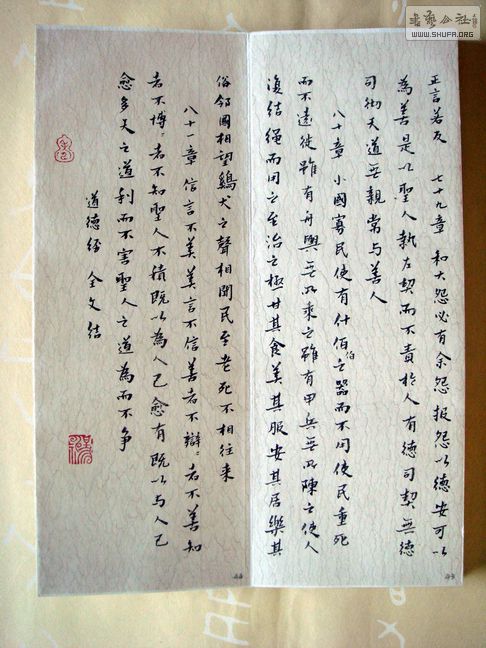 正言若反　七十九章　和大怨必有余怨报怨以德安可以
為善是以聖人執左契而不責於人有德司契無德
司彻天道無親常与善人
八十章　小國寡民使有什伯之器而不用使民重死
伯
而不遠徙雖有舟輿無所乘之雖有甲兵無所陳之使人
復结绳而用之至治之極甘其食美其服安其居樂其
俗邻國相望鷄犬之聲相聞民至老死不相往来
八十一章　信言不美美言不信善者不辯〻者不善知
者不博〻者不知聖人不積既以為人己愈有既以与人己
愈多天之道利而不害聖人之道為而不争
道德经　全文结
44
43
書藝公社
WWW.SHUFA.ORG